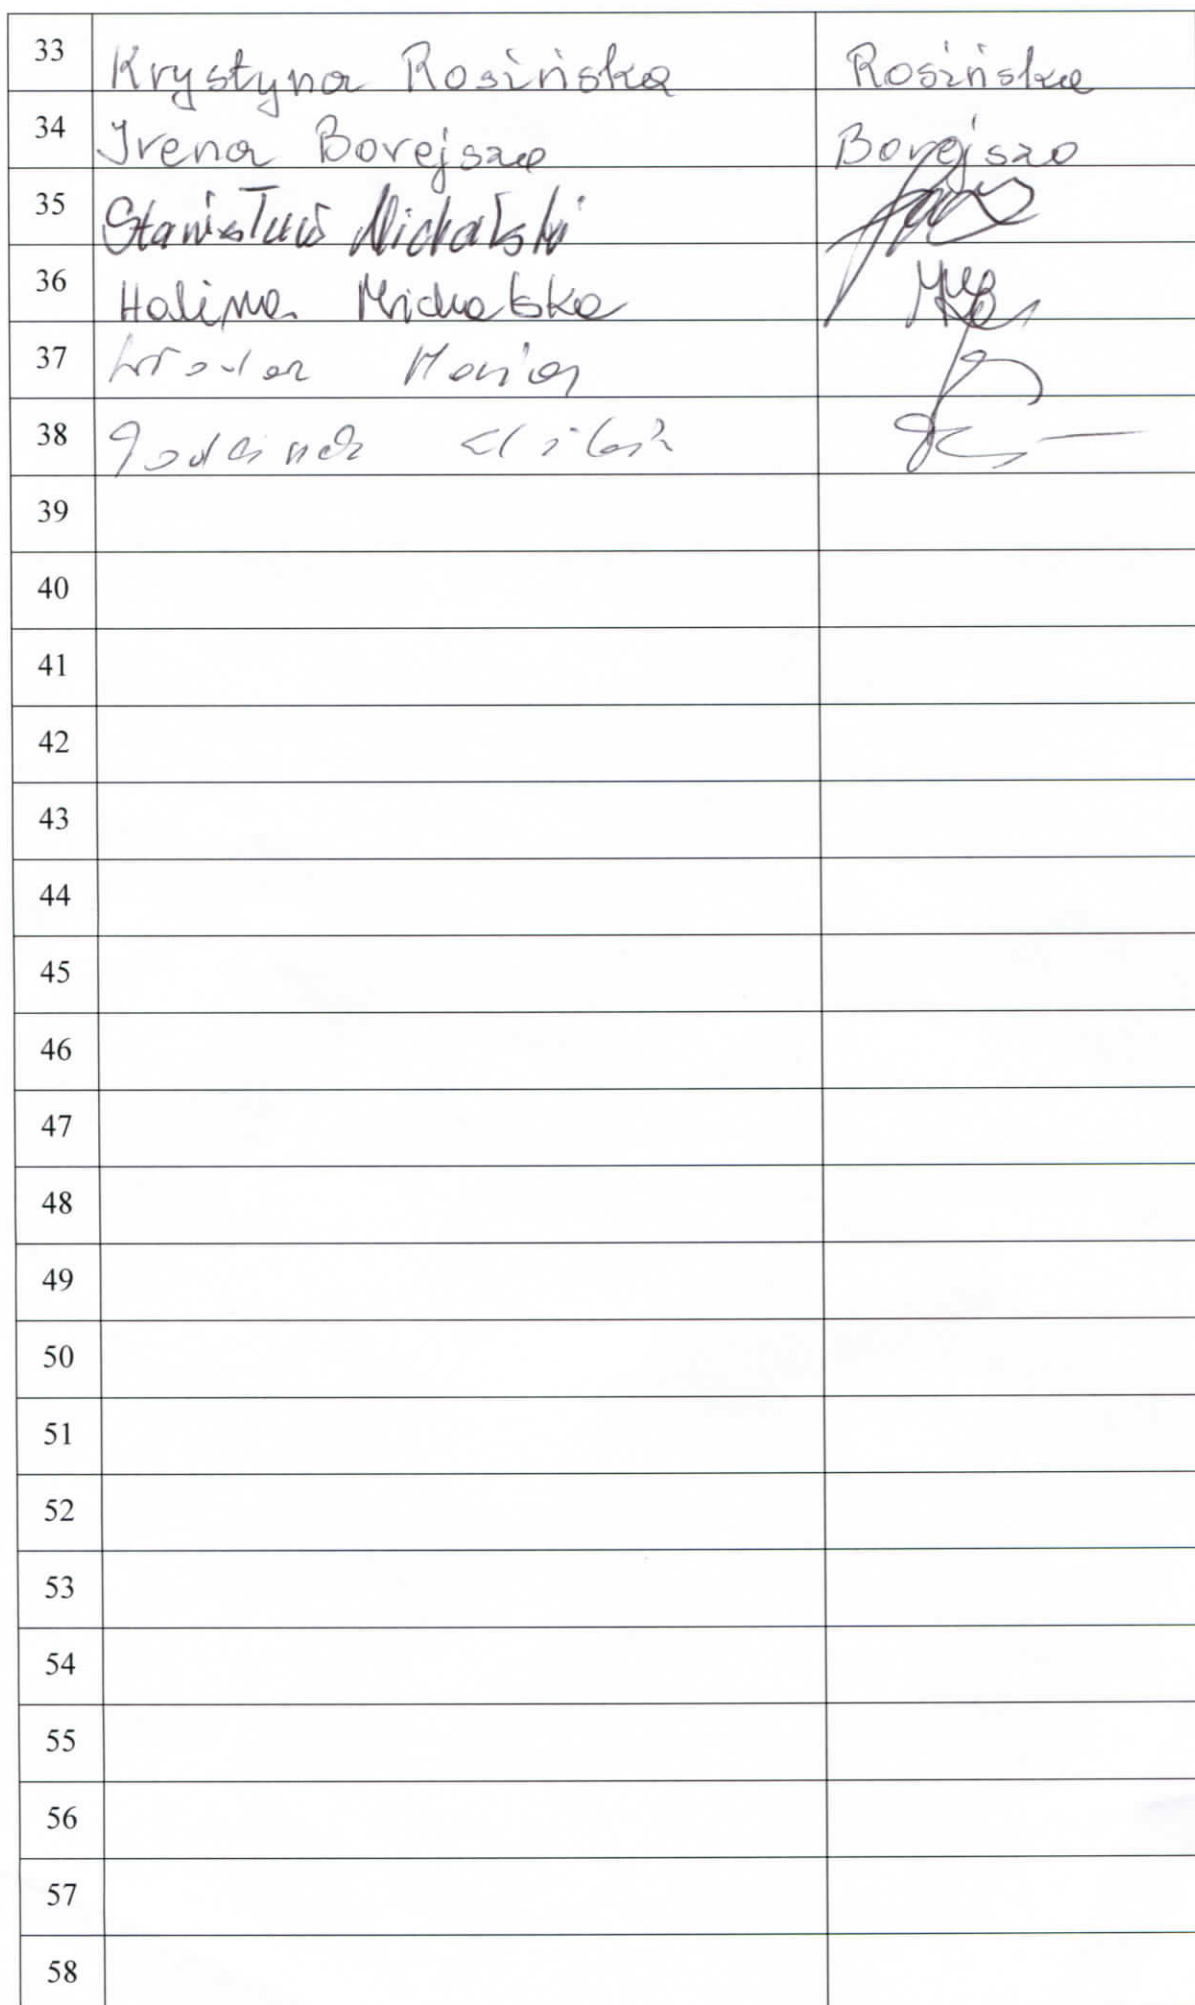 33 Krystyna Rosińska Rosińska
34 Irena Borejszo Borejszo
35 Stanisław Michalski
36 Halina Michalska
37
38
39
40
41
42
43
44
45
46
47
48
49
50
51
52
53
54
55
56
57
58